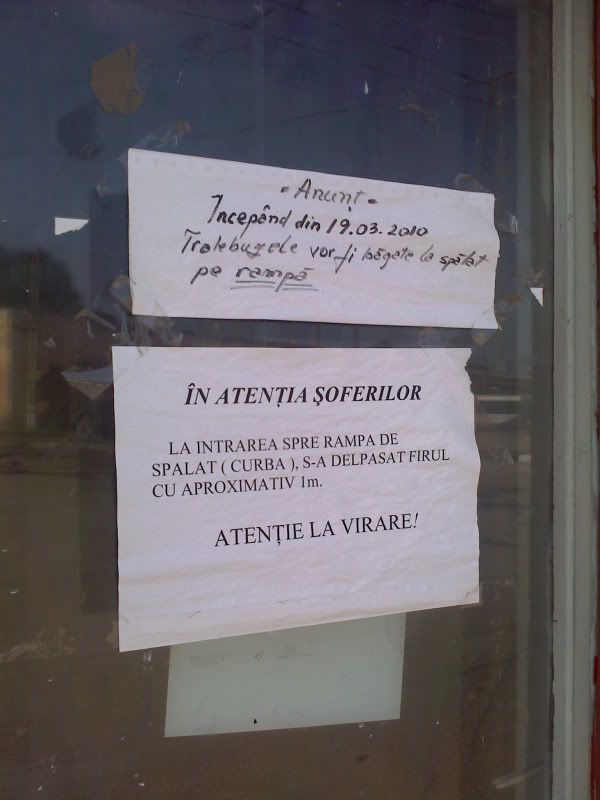 - Anunț -
Începând din 19.03.2010
Trolebuzele vor fi băgate la spălat
pe rampă
ÎN ATENȚIA ŞOFERILOR
LA INTRAREA SPRE RAMPA DE
SPALAT ( CURBA ), S-A DELPASAT FIRUL
CU APROXIMATIV 1m.
ATENȚIE LA VIRARE!